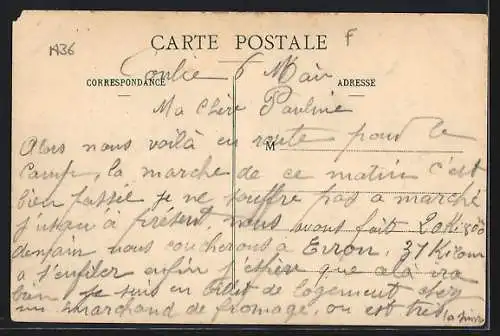 1936
F
CARTE POSTALE
CORRESPONDANCE
ADRESSE
Conlie 6 Mai
Ma Chère Pauline
M
Alors nous voilà en route pour le
Camp, la marche de ce matin c'est
bien passée je ne souffre pas a marché
jusqu'a présent nous avons fait 20 Ki 500
demain nous coucherons a Evron, 37 Ki
a s'enfiler enfin j'espère que ala ira
bien, je suis en billet de logement chez
un marchand de fromage, on est très